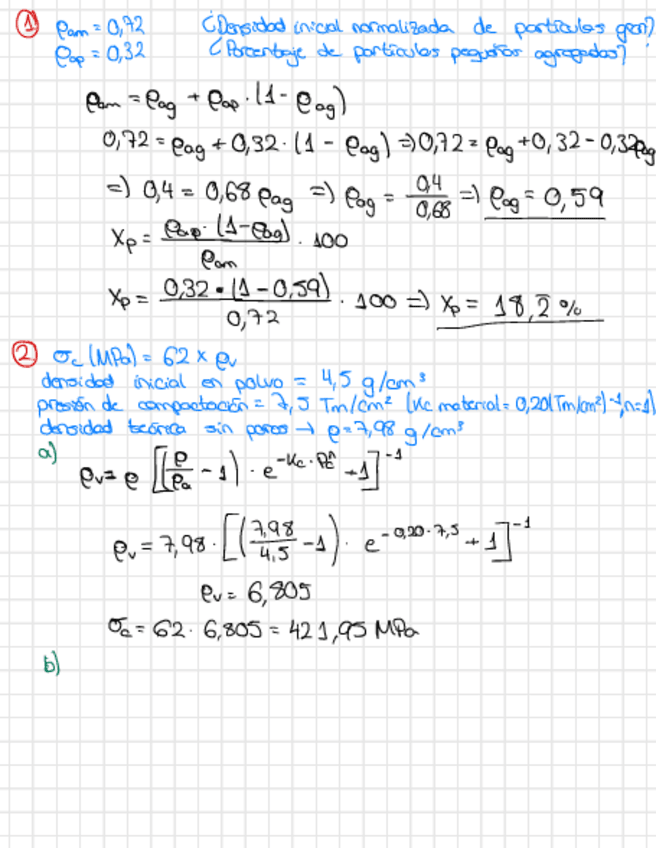 ① ρam = 0,72 ¿Densidad inicial normalizada de partículas gran?
ρap = 0,32 ¿Porcentaje de partículas pequeñas agregadas?
ρam = ρag + ρap · (1 - ρag)
0,72 = ρag + 0,32 · (1 - ρag) ⇒ 0,72 = ρag + 0,32 - 0,32ρag
⇒ 0,4 = 0,68 ρag ⇒ ρag = 0,4/0,68 ⇒ ρag = 0,59
Xp = ρap · (1-ρag) / ρam · 100
Xp = 0,32 · (1 - 0,59) / 0,72 · 100 ⇒ Xp = 18,2 %
② σc (MPa) = 62 x ρv
densidad inicial en polvo = 4,5 g/cm³
presión de compactación = 7,5 Tm/cm² (Kc material = 0,20(Tm/cm²)⁻¹, n=1)
densidad teórica sin poros → ρ = 7,98 g/cm³
a)
ρv = ρ [(ρ/ρa - 1) · e^(-Kc · Pcⁿ) + 1]⁻¹
ρv = 7,98 · [(7,98/4,5 - 1) · e^(-0,20 · 7,5) + 1]⁻¹
ρv = 6,805
σc = 62 · 6,805 = 421,95 MPa
b)